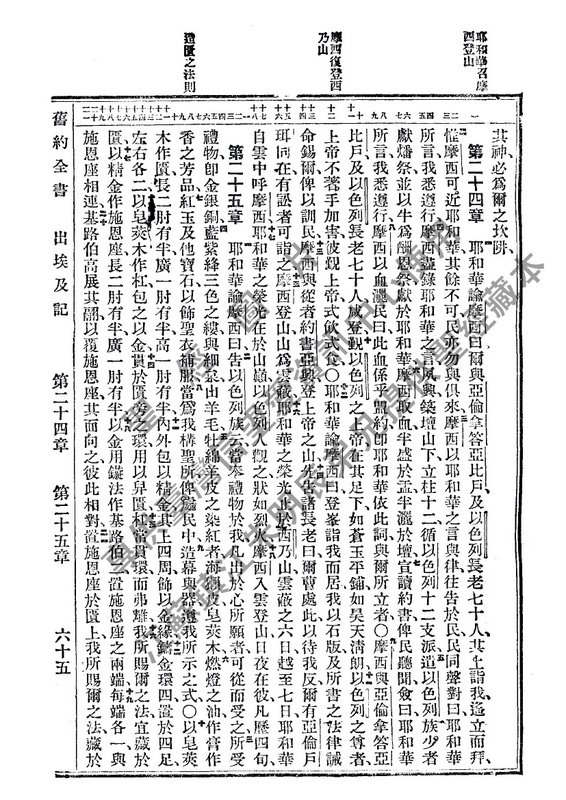 耶和華召摩
西登山
摩西復登西
乃山
造匱之法則
其神必爲爾之坎阱
第二十四章 耶和華諭摩西曰爾與亞倫拿答亞比戶及以色列長老七十人其上詣我遙立而拜
惟摩西可近耶和華其餘不可民亦勿與俱來摩西以耶和華之言與律往告於民民同聲對曰耶和華
所言我悉遵行摩西盡錄耶和華之言夙興築壇山下立柱十二循以色列十二支派遣以色列族少者
獻燔祭並以牛爲酬恩祭獻於耶和華摩西取血半盛於盂半灑於壇宣讀約書俾民聽聞僉曰耶和華
所言我悉遵行摩西以血灑民曰此血係乎盟約卽耶和華依此詞與爾所立者○摩西與亞倫拿答亞
比戶及以色列長老七十人咸登覲以色列之上帝在其足下如蒼玉平鋪如昊天清朗以色列之尊者
上帝不著手加害彼覲上帝式飲式食○耶和華諭摩西曰登峯詣我而居我以石版及所書之法律誡
命錫爾俾以訓民摩西與從者約書亞興登上帝之山先諸長老曰爾曹處此以待我反爾有亞倫戶
珥同在有訟者可詣之摩西登山山爲雲蔽耶和華之榮光止於西乃山雲蔽之六日越至七日耶和華
自雲中呼摩西耶和華之榮光在於山巔以色列人觀之狀如烈火摩西入雲登山日夜在彼凡歷四旬
第二十五章 耶和華諭摩西曰告以色列族云當奉禮物於我凡出於心所願者可從而受之所受
禮物卽金銀銅藍紫絳三色之縷與細枲山羊毛牡綿羊皮之染紅者海獺皮皂莢木燃燈之油膏作
香之芳品紅玉及他寶石以飾聖衣補服當爲我構聖所俾 民中造幕與器遵我所示之式○以皂莢
木作匱長二肘有半廣一肘有半高一肘有半內外包以精金其上四周飾以金緣鑄金環四置於四足
左右各二以皂莢木作杠包之以金貫於匱旁之環用以舁匱杠當貫環而弗離我所賜爾之法宜藏於
匱以精金作施恩座長二肘有半廣一肘有半以金用鎚法作基路伯二置施恩座之兩端每端各一與
施恩座相連基路伯高展其翮以覆施恩座其面向之彼此相對置施恩座於匱上我所賜爾之法藏於
舊約全書 出埃及記 第二十四章 第二十五章 六十五